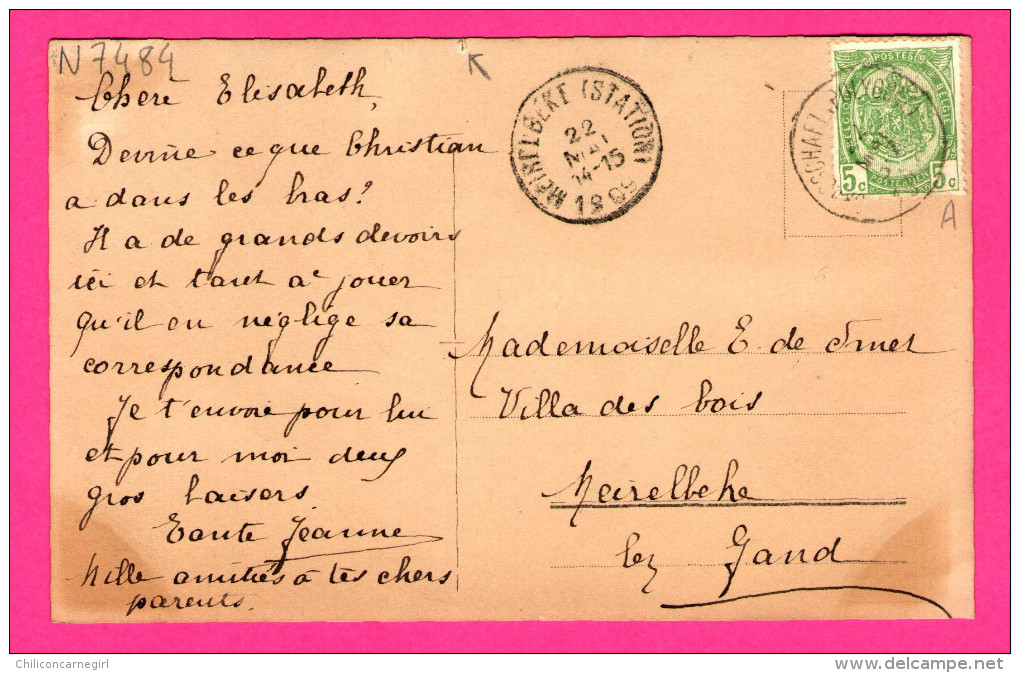 N7484
Chère Elisabeth,
Devine ce que Christian
a dans les bras?
Il a de grands devoirs
ici et tant à jouer
qu'il en néglige sa
correspondance
Je t'envoie pour lui
et pour moi deux
gros baisers.
Tante Jeanne
Mille amitiés à tes chers
parents.
MEIRELBEKE (STATION)
22
MAI
14-15
POSTES
BELGIQUE
BELGIË
5c 5c
POSTERIJEN
A
Mademoiselle E. de Smet
Villa des bois
Meirelbeke
lez Gand
Chiliconcarnegirl
www.delcampe.net